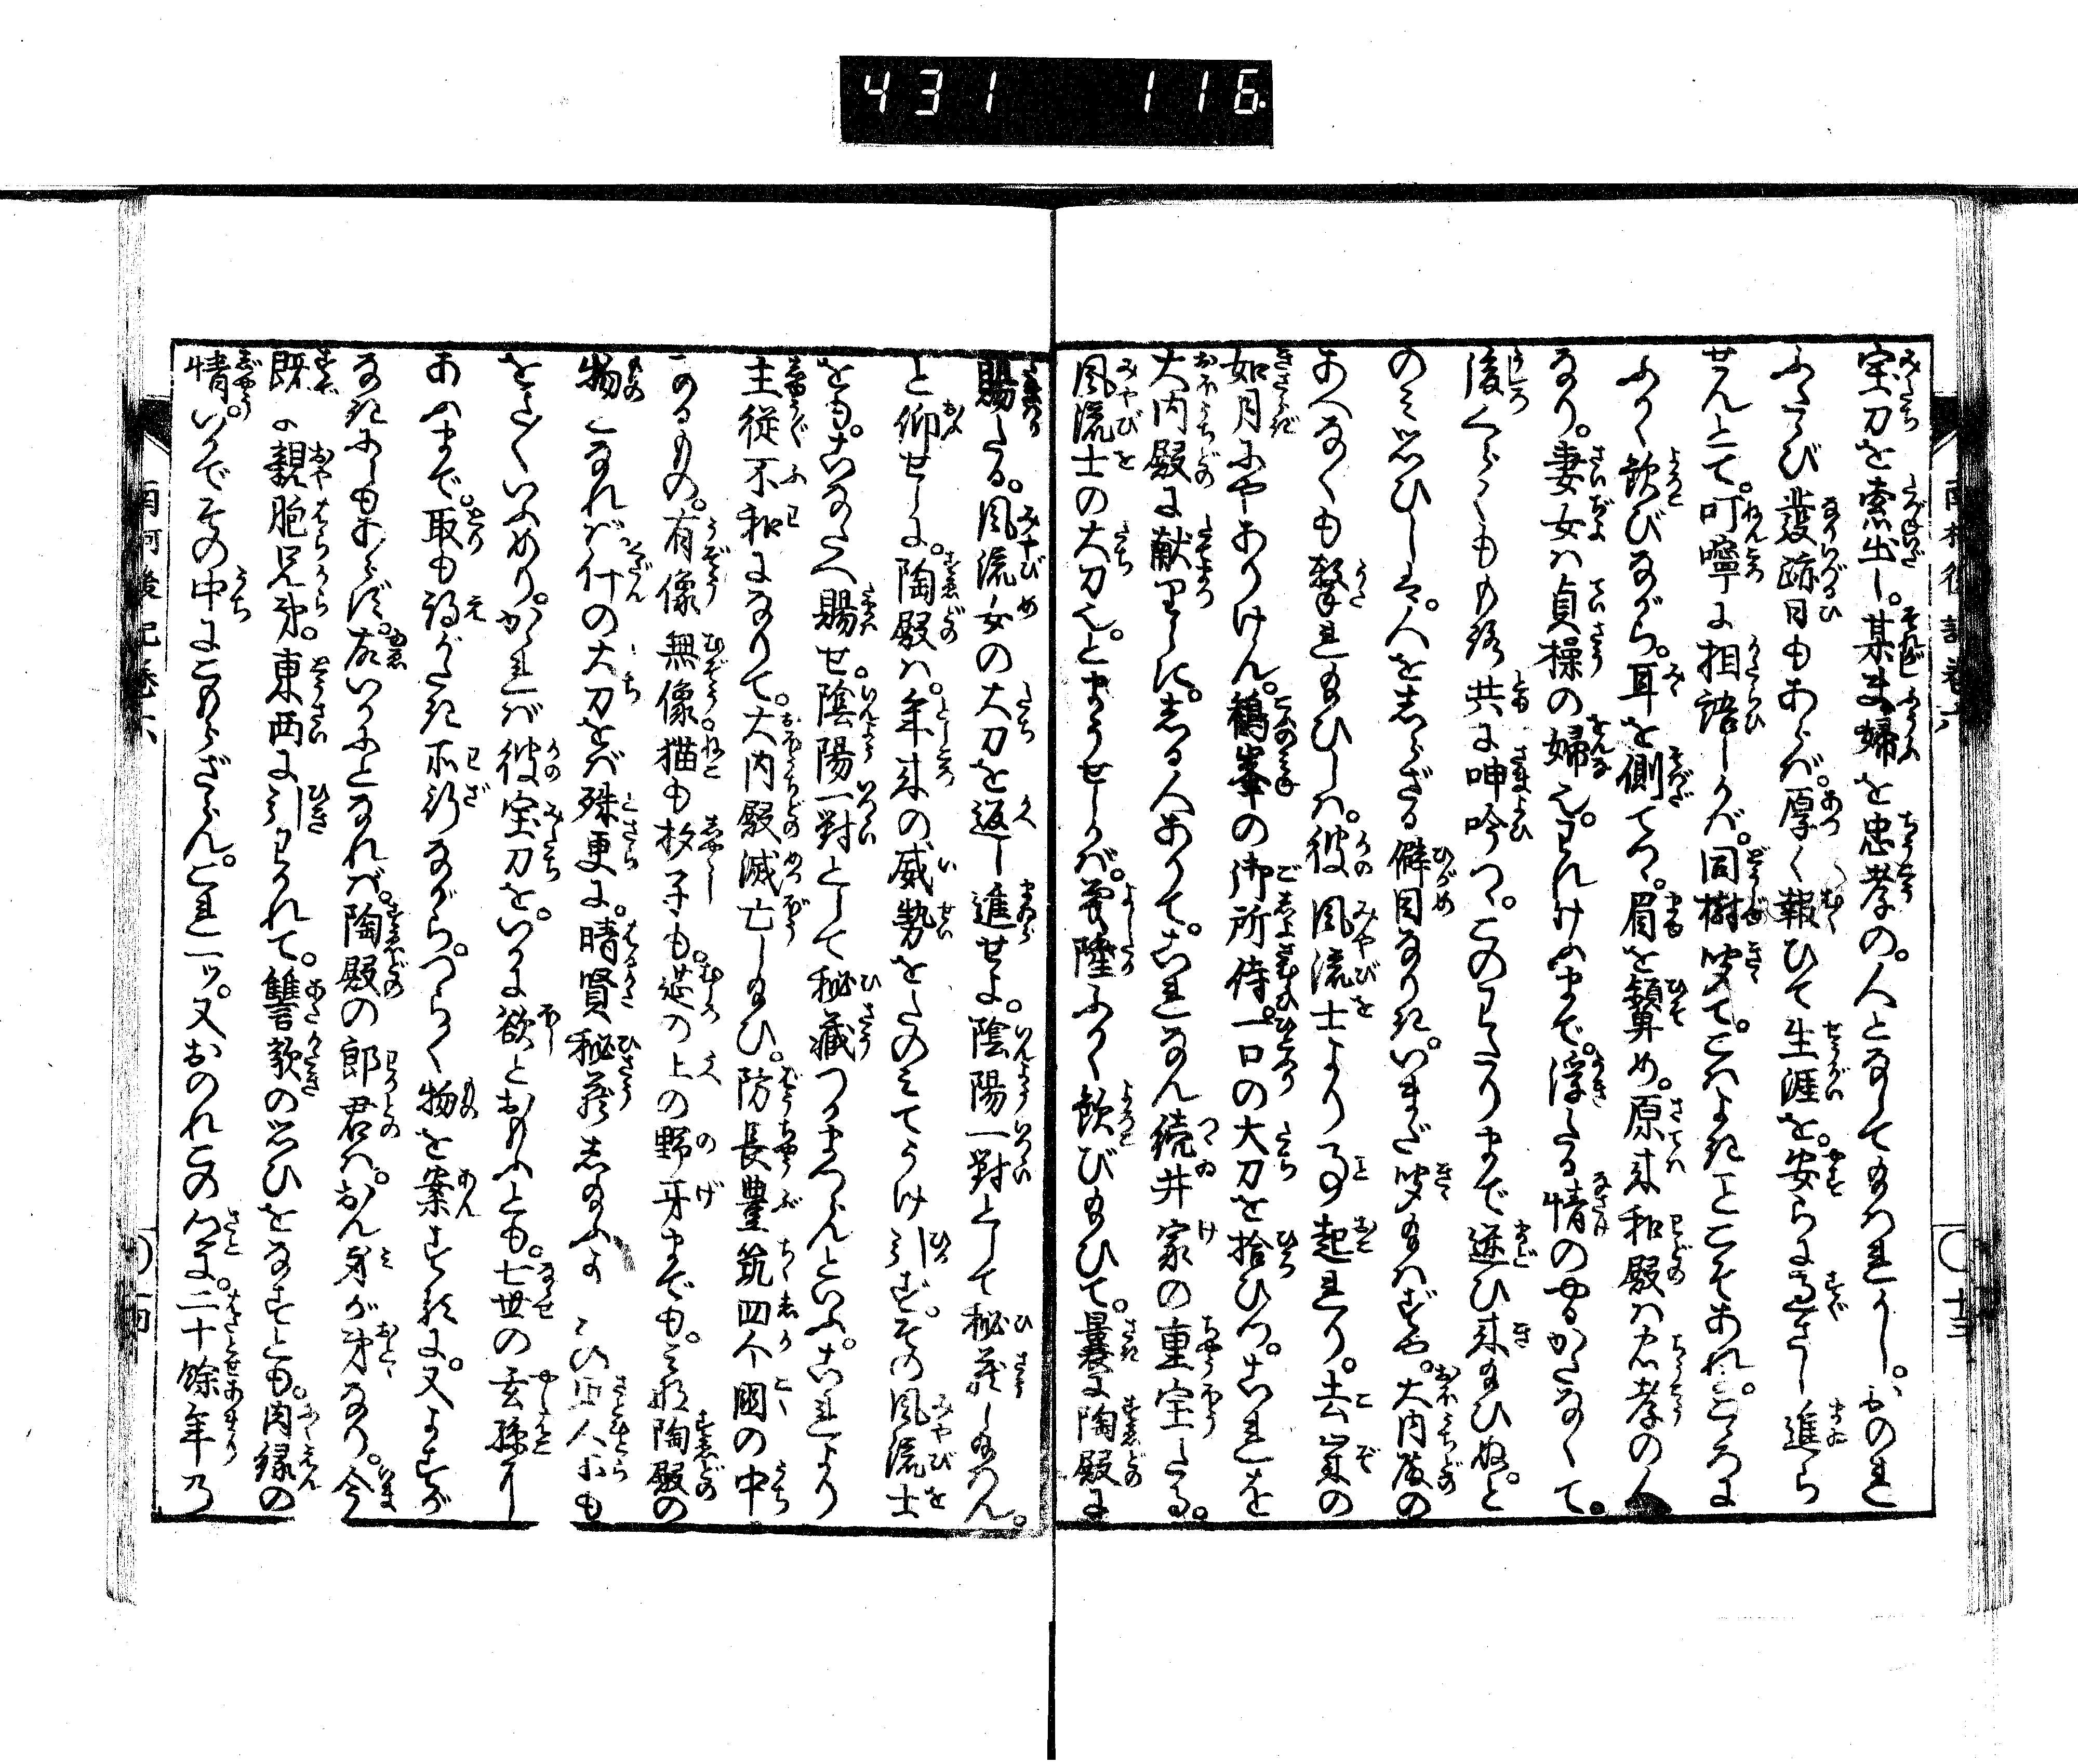 431 116
宝刀を索出し。某夫婦を忠孝の。人となしてたまはれかし。おのれ
ふたゝび發跡日もあらば。厚く報ひて生涯を。安らに過さし進ら
せんとて。叮嚀に相語しかば。同樹聞て。こはよきことこそあれ。ところに
ふかく歓びながら。耳を側てつ。眉を顰め。原来和殿は忠孝の人
なり。妻女は貞操の婦也。われけふまで。浮たる情のやるかたなくて。
後くらくもものがら共に呻吟つ。このわたりまで迷ひ来たまひぬと
のみ思ひしは。人をしらざる僻目なりき。いまだ聞たまはずや。大内殿の
あへなくも撃れたまひしは。彼風流士より事起れり。去歳の
如月にやありけん。鶴峯の御所侍。一口の大刀を拾ひつ。これを
大内殿に献りしに。しる人ありて。これなん続井家の重宝たる。
風流士の大刀也。とまうせしかば。義隆ふかく歓びたまひて。曩に陶殿に
賜たる。風流女の大刀を返し進せよ。陰陽一對として秘蔵したまはん。
と仰せしに。陶殿は。年来の威勢をたのみてうけ引ず。その風流士
をも。こなたへ賜せ。陰陽一對として秘蔵つかまつらんといふ。これより
主従不和になりて。大内殿滅亡したまひ。防長豊筑四个國の中
にあるもの。有像無像猫も杓子も。筵の上の野牙までも。みな陶殿の
物となれば件の大刀をば殊更に。晴賢秘蔵したまふよし人にも
をさ〳〵いふめり。かゝれば彼宝刀を。いかに欲とおもふとも。七世の玄孫に
あふまで。取も得がたき所行ながら。つら〳〵物を案ずるに。又よすが
なきにしもあらず。故いかにとなれば。陶殿の郎君は。おん身が弟なり。今
既に親胞兄弟。東西に引わかれて。讐敵の思ひをなすとも。肉縁の
情。いかでその中になからざらん。これ一ッ。又おのれこの処に。二十餘年の